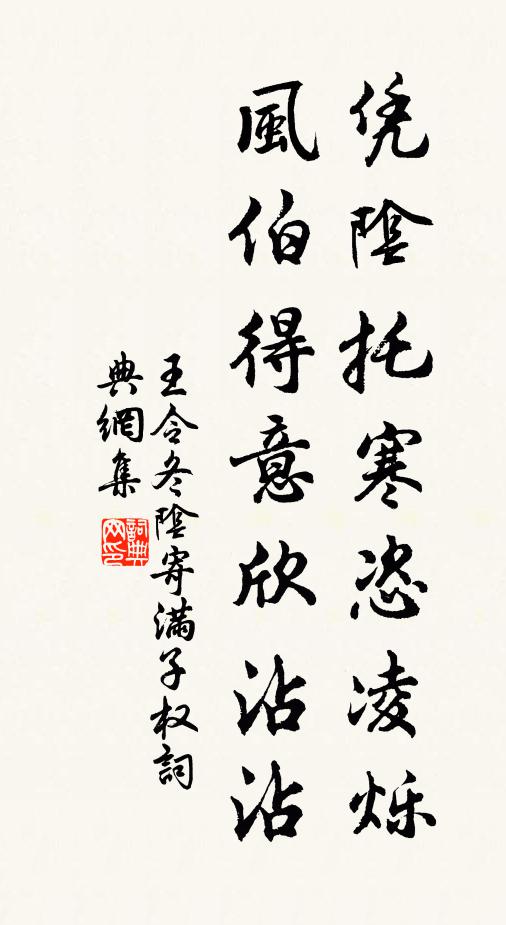 凭陰托寒恣凌烁
風伯得意欣沾沾
王令冬陰寄滿子权詞
典網集
詞典网印